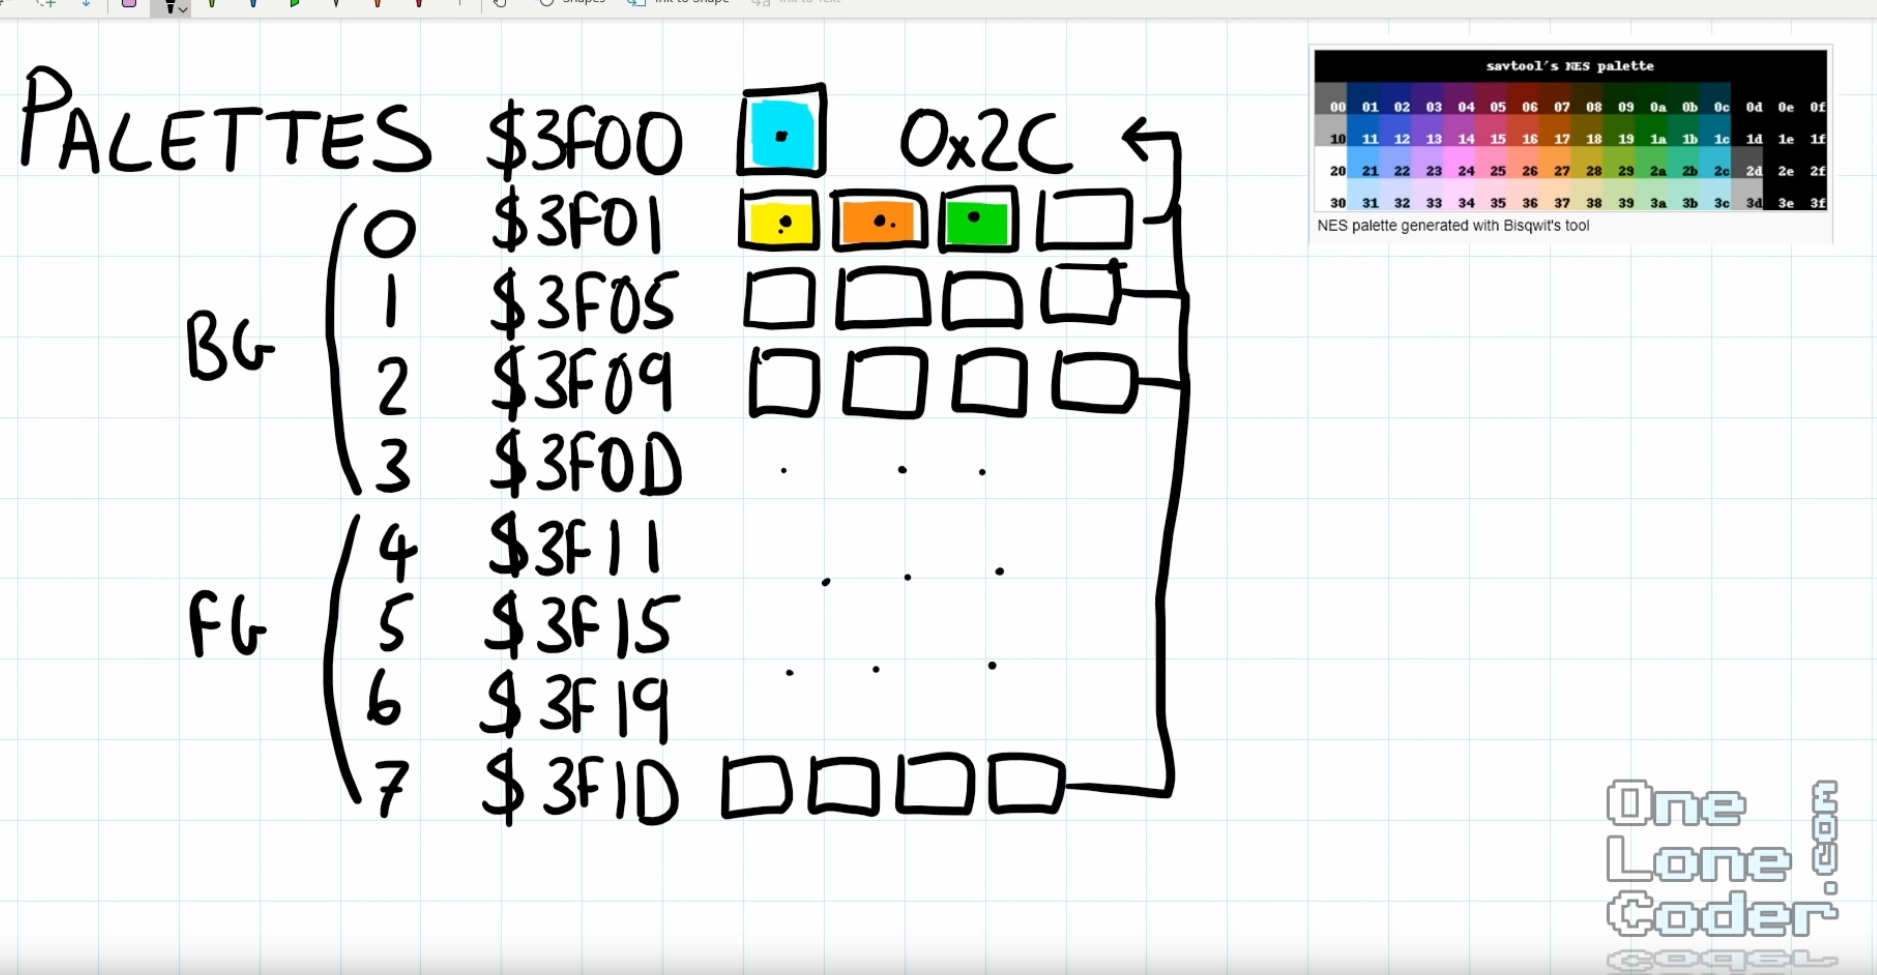 Shapes
PALETTES $3F00 0x2C
BG
0 $3F01
1 $3F05
2 $3F09
3 $3F0D
FG
4 $3F11
5 $3F15
6 $3F19
7 $3F1D
savtool's NES palette
00 01 02 03 04 05 06 07 08 09 0a 0b 0c 0d 0e 0f
10 11 12 13 14 15 16 17 18 19 1a 1b 1c 1d 1e 1f
20 21 22 23 24 25 26 27 28 29 2a 2b 2c 2d 2e 2f
30 31 32 33 34 35 36 37 38 39 3a 3b 3c 3d 3e 3f
NES palette generated with Bisqwit's tool
One
Lone
Coder
.com